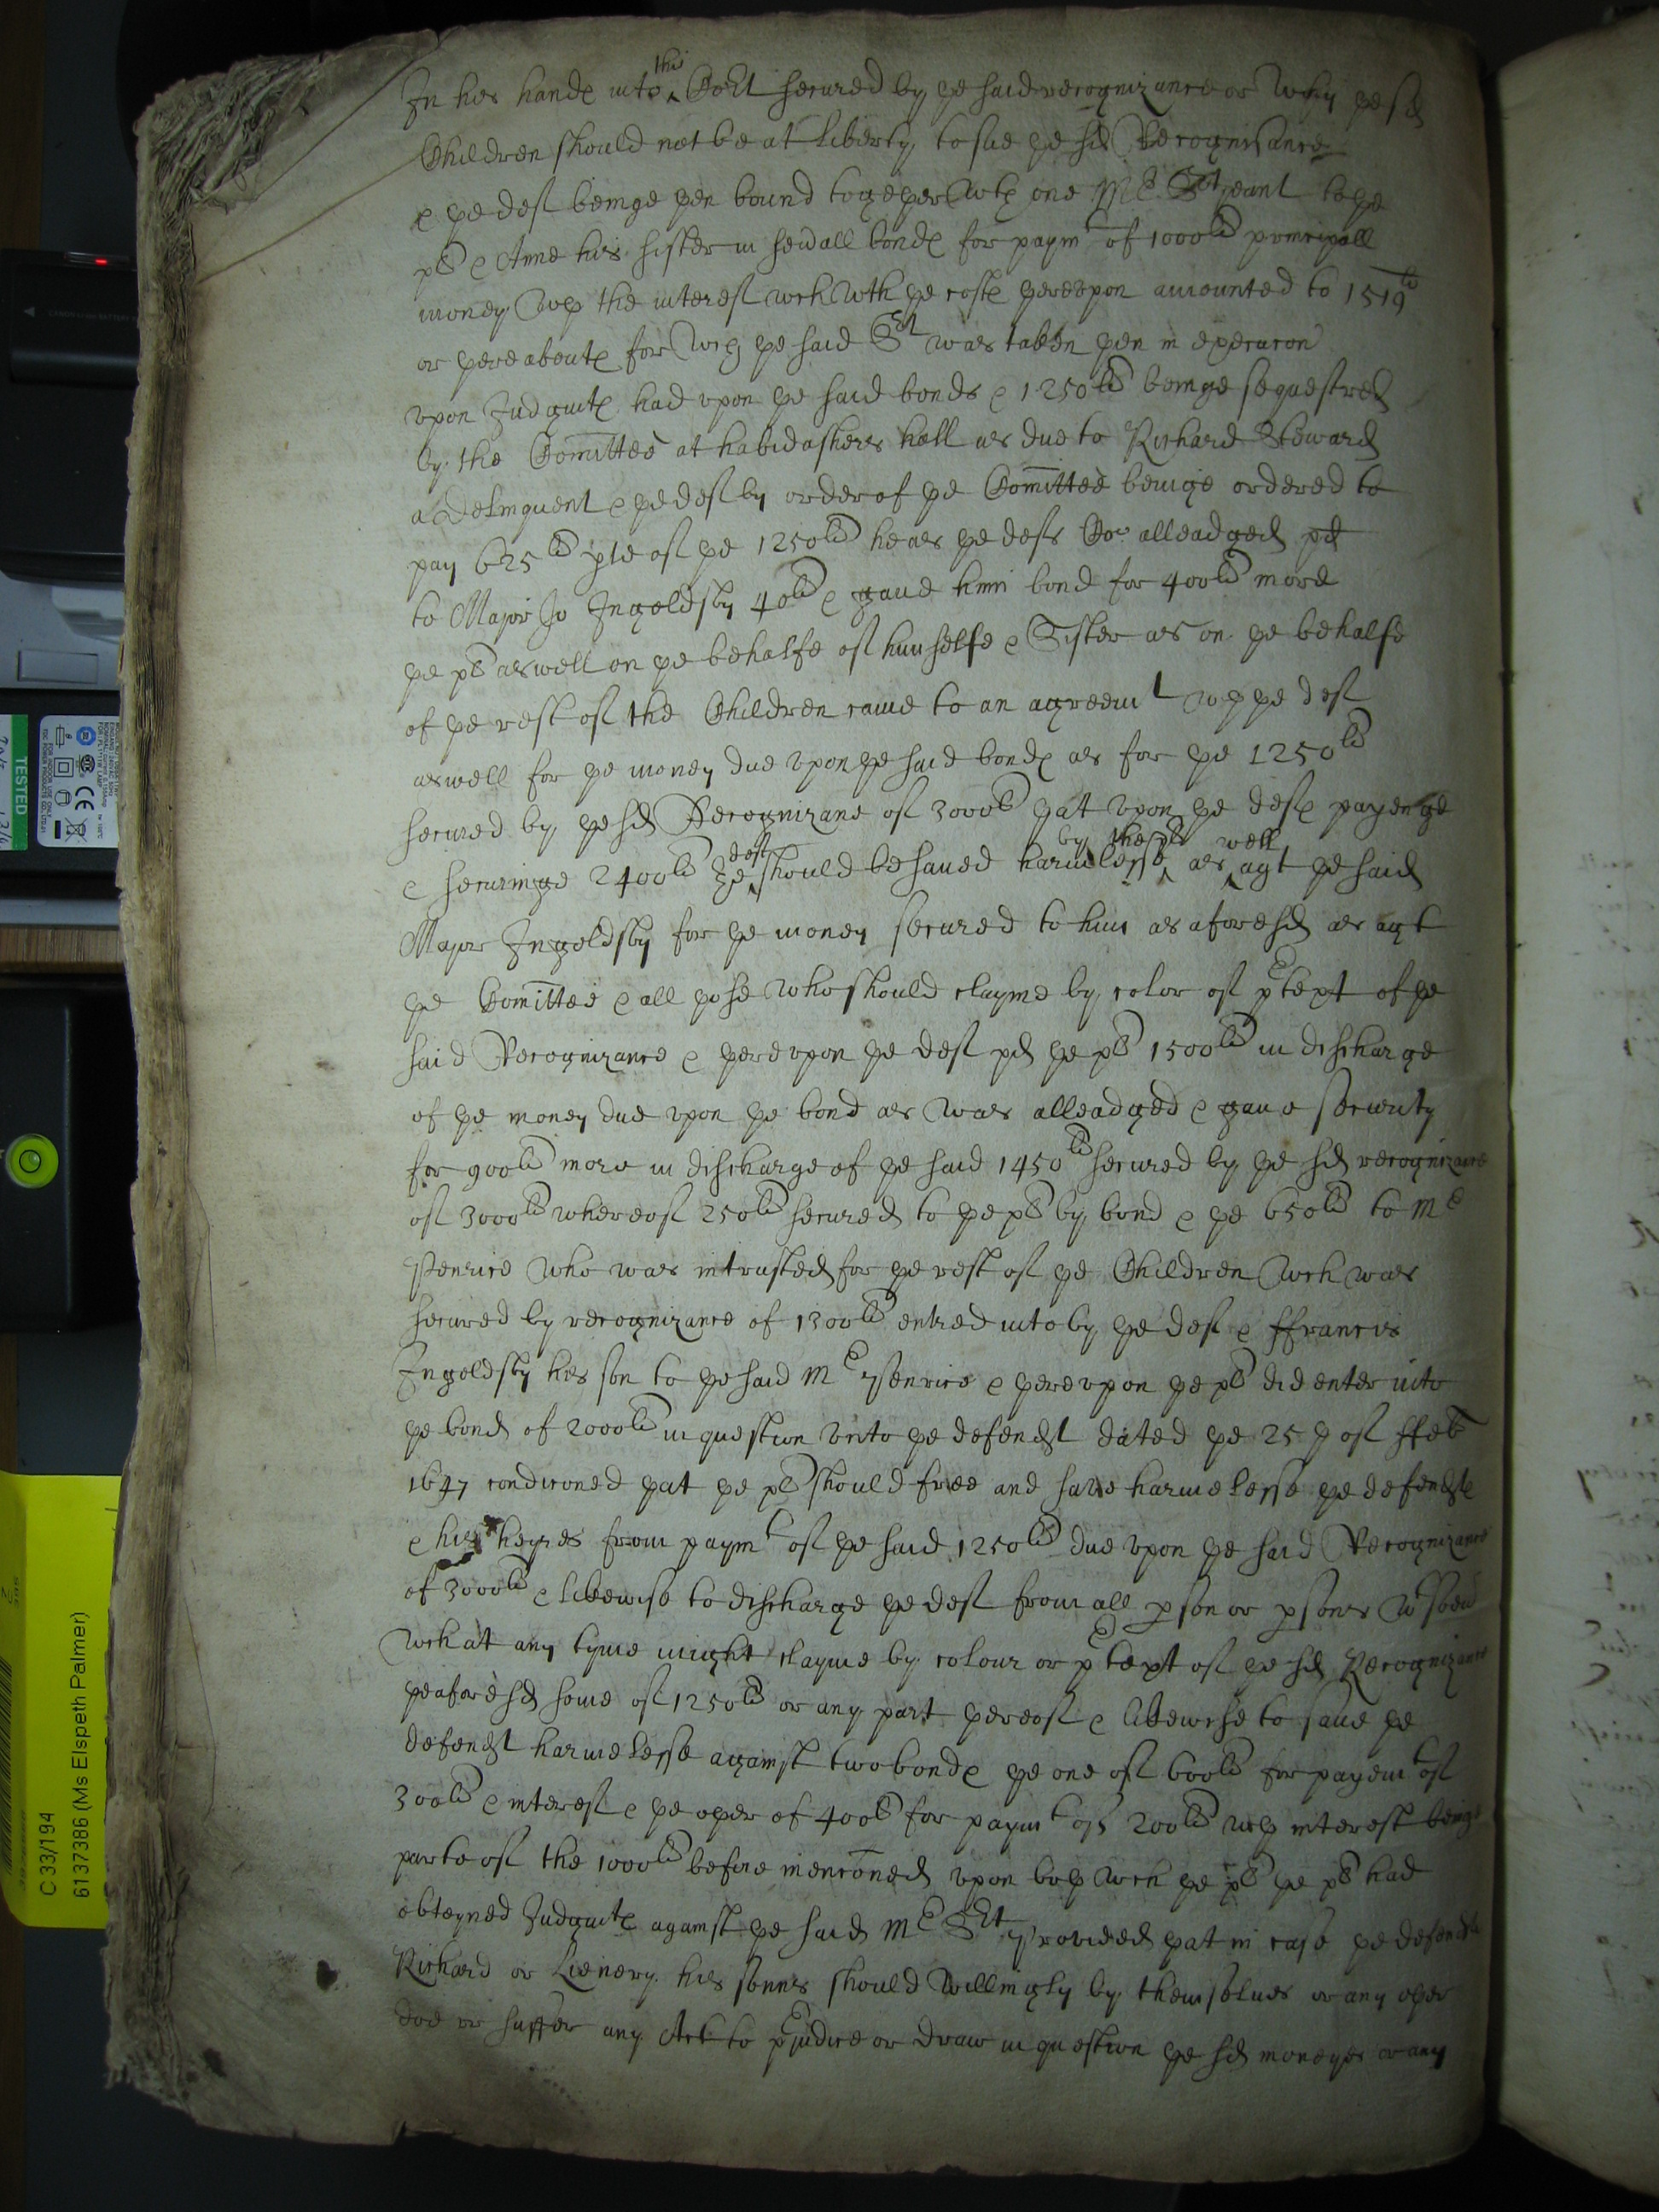 In his hand℮ into this Co:rt secured by ye said recognizance or why ye sd
Children should not be at liberty to sue ye sd Recognisance
& ye deft beinge yen bound togeyer wth one Mr Seriant to ye
plt & Anne his sister in seu'all bond℮ for paymt of 1000li principall
money wth the interest wch wth ye cost℮ yerevpon amounted to 1519li
or yereabout℮ for wch ye said St was taken yen in execucon
vpon Judgmt℮ had vpon ye said bonds & 1250li beinge sequestred
by the Comittee at habidashers hall as due to Richard Steward
a delinquent & ye deft by order of ye Comittee beinge ordered to
pay 625li pte of ye 1250li he as ye defts Co: alleadged pd
to Major Jo Ingoldsby 40li & gaue him bond for 400li more
ye plt aswell on ye behalfe of himselfe & Sister as on ye behalfe
of ye rest of the Children came to an agreemt wth ye deft
aswell for ye money due vpon ye said bond℮ as for ye 1250li
secured by ye sd Recognizane of 3000li yat vpon ye deft℮ payenge
& securinge 2400li ye deft should be saued harmlesse by the plt as well agt ye said
Major Ingoldsby for ye money secured to him as aforesd as agt
ye Comittee & all yose who should clayme by color of ptext of ye
said Recognizance & yerevpon ye deft pd ye plt 1500li in discharge
of ye money due vpon ye bond as was alleadged & gaue security
for 900li more in discharge of ye said 1450li secured by ye sd recognizance
of 3000li whereof 250li secured to ye plt by bond & ye 650li to Mr
Penrice who was intrusted for ye rest of ye Children wch was
secured by recognizance of 1300li entred into by ye deft & ffrancis
Ingoldsby his son to ye said Mr Penrice & yerevpon ye plt did enter into
ye bond of 2000li in question vnto ye defendt dated ye 25th of ffeb
1647 condiconed yat ye plt should free and saue harmelesse ye defendt℮
& his heyres from paymt of ye said 1250li due vpon ye said Recognizance
of 3000li & likewise to discharge ye deft from all pson or psons wtsoeu'
wch at any tyme might clayme by colour or ptext of ye sd Recognizance
ye aforesd some of 1250li or any part yereof & likewise to saue ye
defendt harmelesse against two bond℮ ye one of 600li for payemt of
300li & interest & ye oyer of 400li for paymt of 200li wth interest beinge
parte of the 1000li before menconed vpon both wch ye plt ye plt had
obteyned Judgmt℮ against ye said Mr St Provided yat in case ye defendt
Richard or his sonnes should willingly by themselues or any oyer
doe or suffer any Act to pjudice or draw in question ye sd moneyes or any
C 33/194
6137386 (Ms Elspeth Palmer)
TESTED